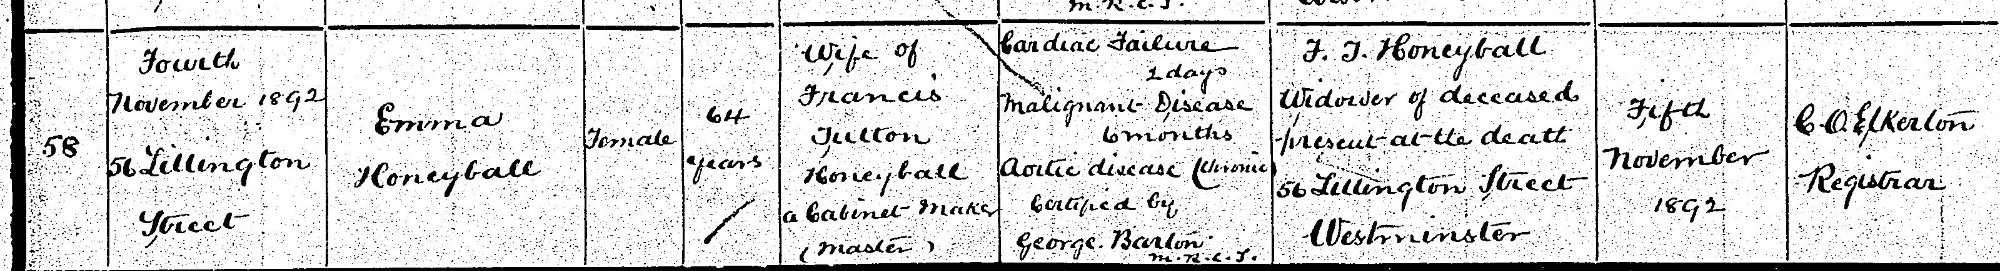 M.R.C.S.
58
Fourth
November 1892
56 Lillington
Street
Emma
Honeyball
Female
64
years
Wife of
Francis
Tutton
Honeyball
a Cabinet Maker
(Master)
Cardiac Failure
2 days
Malignant Disease
6 months
Aortic disease (Chronic)
Certified by
George Barton
M.R.C.S.
F. T. Honeyball
Widower of deceased
present at the death
56 Lillington Street
Westminster
Fifth
November
1892
C. O. Elkerton
Registrar